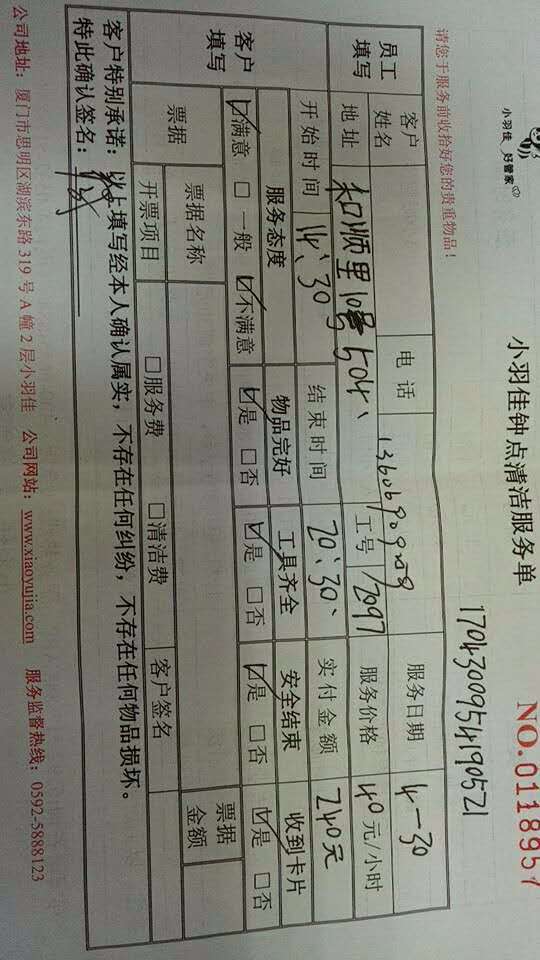 小羽佳 好管家
小羽佳钟点清洁服务单
NO.0118957
17043009554190521
请您于服务前收拾好您的贵重物品！
员工填写
客户姓名
电话
服务日期 4-30
地址 和顺里10号504、
工号 12097
服务价格 40元/小时
开始时间 14、30
结束时间 20、30、
实付金额 240元
客户填写
服务态度 物品完好 工具齐全 安全结束 收到卡片
☑满意 □一般 ☑不满意 ☑是 □否 ☑是 □否 ☑是 □否 ☑是 □否
票据
票据名称
票据金额
开票项目 □服务费 □清洁费 客户签名
客户特别承诺：以上填写经本人确认属实，不存在任何纠纷，不存在任何物品损坏。
特此确认签名：
公司地址：厦门市思明区湖滨东路 319 号 A 幢 2 层小羽佳 公司网站：www.xiaoyujia.com 服务监督热线：0592-5888123